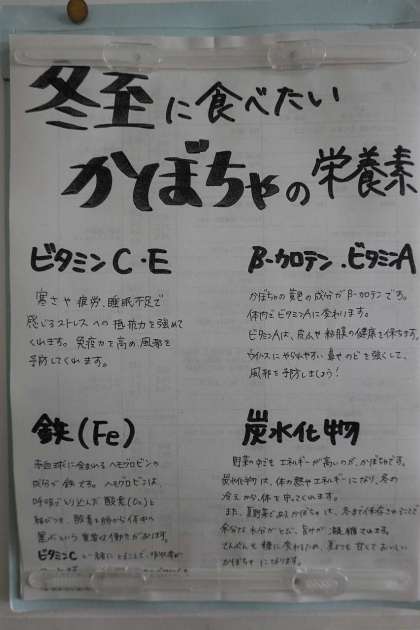 冬至に食べたい
かぼちゃの栄養素
ビタミンC・E
寒さや疲労、睡眠不足で
感じるストレスへの抵抗力を強めて
くれます。免疫力を高め、風邪を
予防してくれます。
β-カロテン.ビタミンA
かぼちゃの黄色の成分がβ-カロテンです。
体内でビタミンAに変わります。
ビタミンAは、皮ふや粘膜の健康を保ちます。
ウイルスにやられやすい鼻やのどを強くして、
風邪を予防しましょう!
鉄(Fe)
赤血球に含まれるヘモグロビンの
成分が鉄です。ヘモグロビンは、
呼吸でとり込んだ酸素(O₂)と
結びつき、酸素を肺から体中に
運ぶという重要な働きがあります。
ビタミンCと一緒にとることで、吸収率が
炭水化物
野菜の中でもエネルギーが高いのが、かぼちゃです。
炭水化物は、体の熱やエネルギーになり、冬の
冷えから体を守ってくれます。
また、夏野菜であるかぼちゃは、冬まで保存されることで
余分な水分がとび、旨味が凝縮されます。
でんぷんも糖に変わるため、夏よりも甘くておいしい
かぼちゃになります。